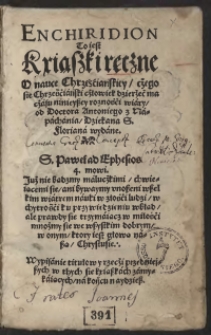 ENCHIRIDION
To jest
Kxiąszki ręczne
O nauce Chrześciańskiey / czego
sie Chrześciański człowiek dzierżeć ma
czásu ninieyszey roznośći wiáry /
od Doctorá Antoniego z Ná-
páchánia / Dziekaná S.
Floriáná wydáne.
S. Paweł ad Ephesios
4. mowi.
Już nie bądźmy máluczkimi / chwie-
iącemi sie / áni bywaymy vnoszeni wszel-
kim wiátrem náuki w złośći ludzi / w
chytrośći ku przywiedzieniu w błąd /
ále prawdy sie trzymáiąc w miłośći
mnożmy sie we wszytkim dobrym /
w onym / ktory iest głowá ná-
szá / Chrystusie.
Wypisánie titułow y rzeczy przedniey-
szych w thych sie kxiąszkách zámy-
káiących / ná końcu naydziesz.
391